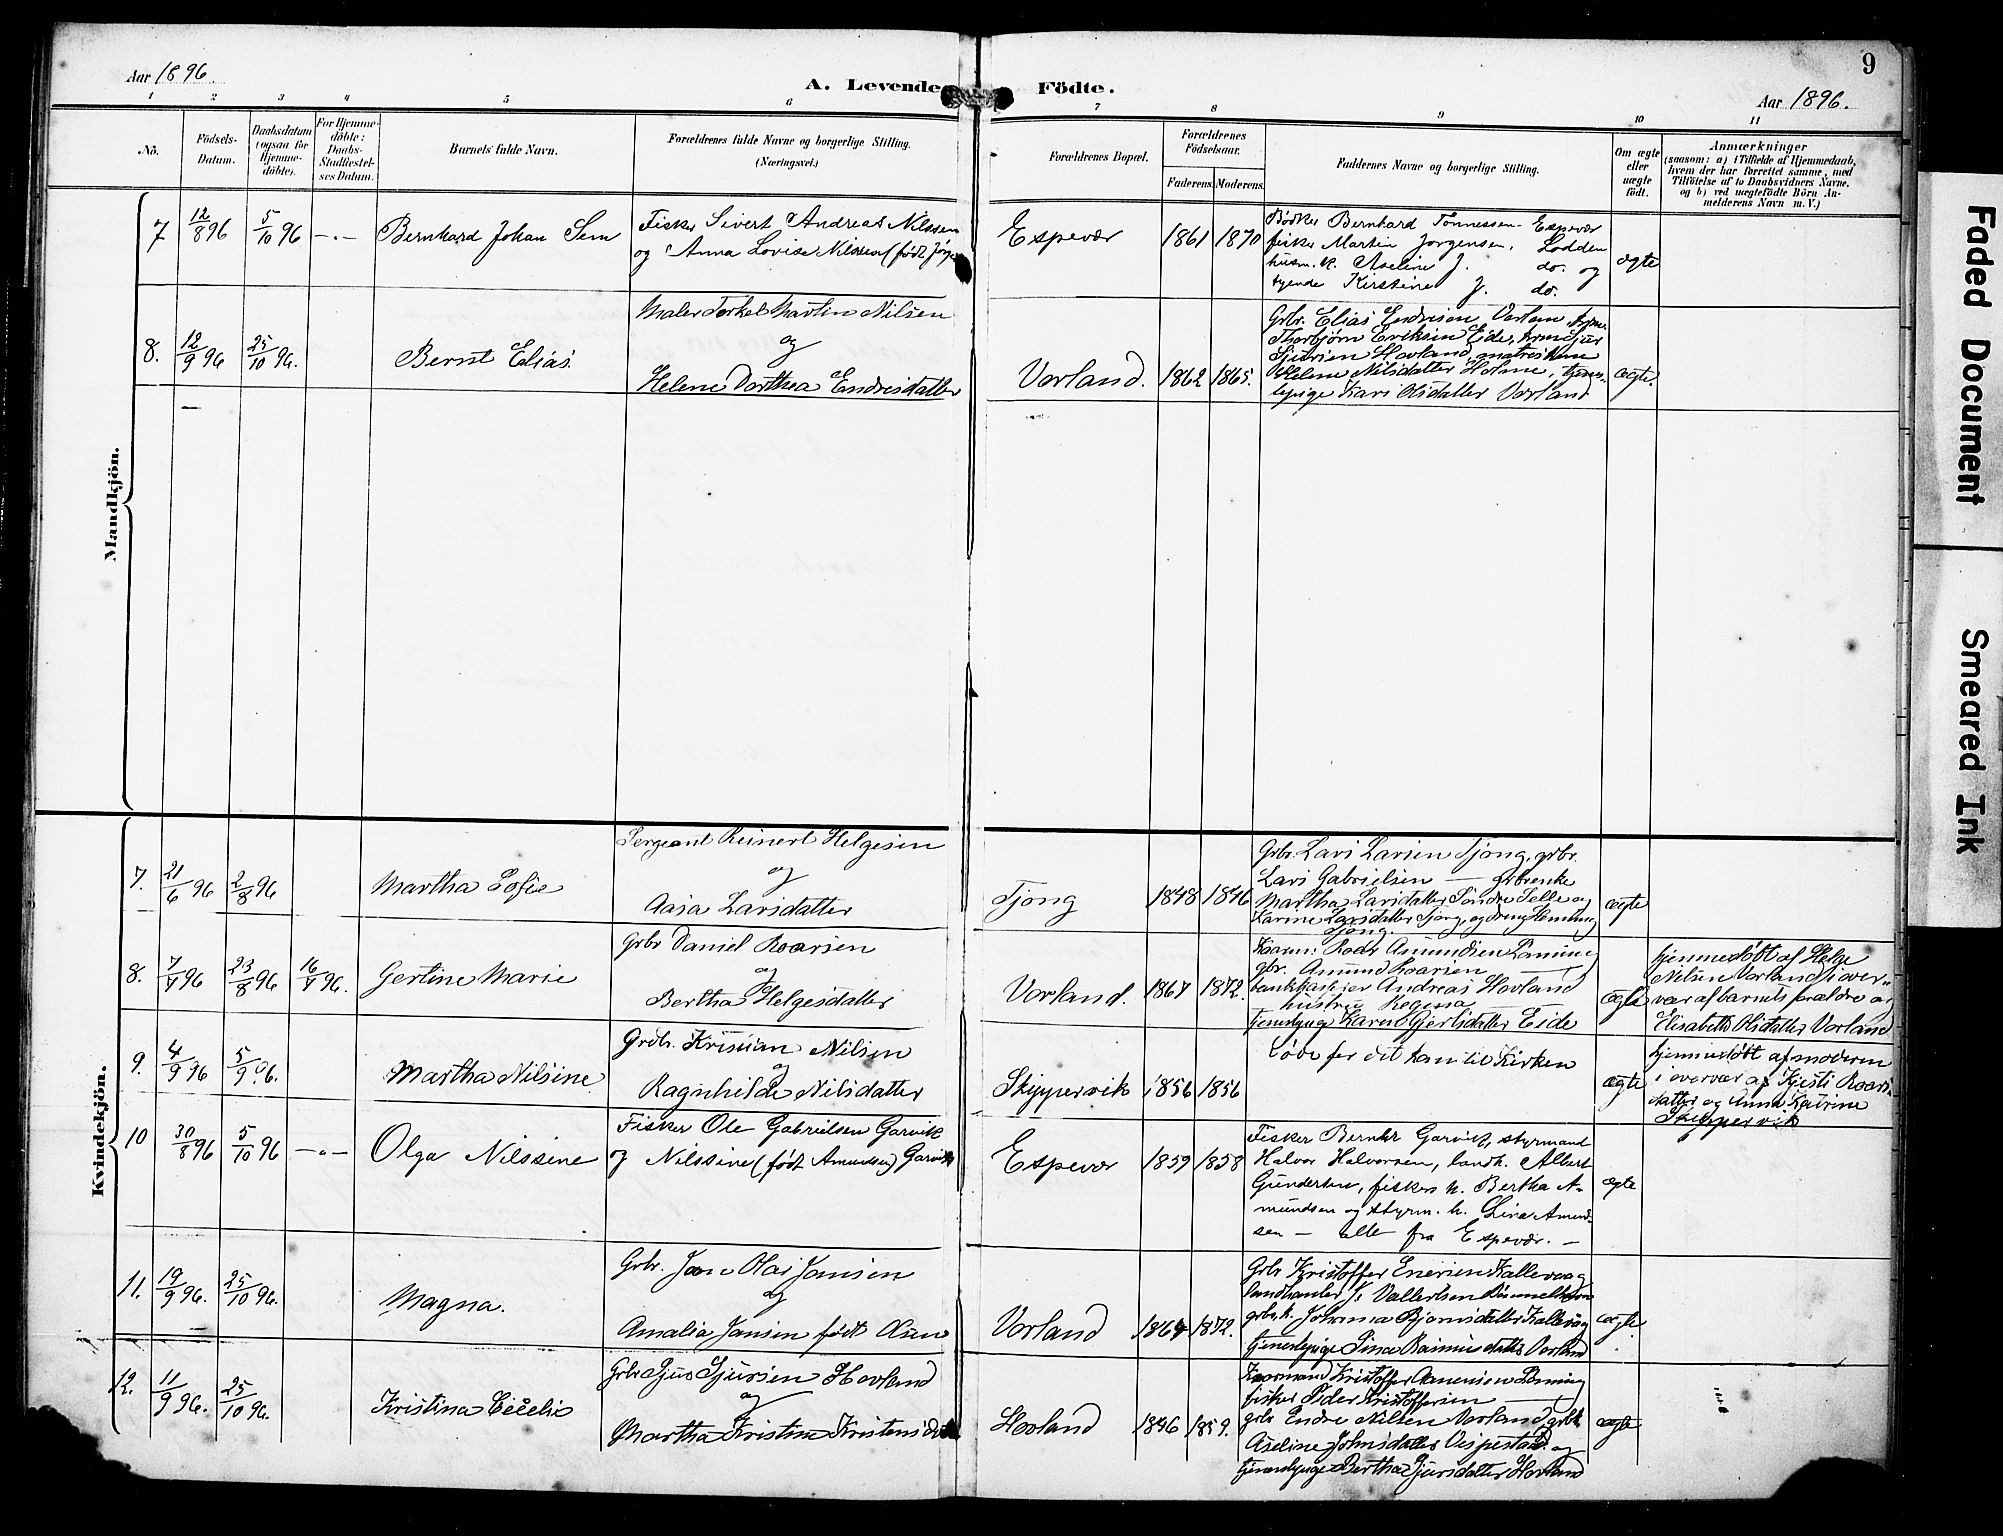 Aar 1896.
A. Levende Födte.
9
Aar 1896.
1 2 3 4 5 6 7 8 9 10 11
No.
Födsels-Datum.
Daabsdatum (ogsaa for Hjemme-döbte).
For Hjemme-döbte: Daabs-Stadfæstel-ses Datum.
Barnets fulde Navn.
Forældrenes fulde Navne og borgerlige Stilling.
(Næringsvei.)
Forældrenes Bopæl.
Forældrenes Födselsaar.
Faderens. Moderens.
Faddernes Navne og borgerlige Stilling.
Om ægte eller uægte födt.
Anmærkninger
(saasom: a) i Tilfælde af Hjemmedaab,
hvem der har forrettet samme, med
Tilföielse af to Daabsvidners Navne.
og b) ved uægtefödte Börn An-
melderens Navn m. V.)
Mandkjön.
7 12/8 96 5/10 96 -"- Bernhard Johan Sem
Fisker Sivert Andreas Nilssen
og Anna Lovise Nilssen (født Jörge
Espevær 1861 1870
Bødker Bernhard Tönnessen Espevær
fisker Martin Jorgensen, Lodden
husm. k. Aseline J. do. og
tyende Kirstine J. do.
ægte
8. 12/9 96 25/10 96. Bernt Elias.
Maler Torkel Martin Nilsen
og
Helene Dorthea Endresdatter
Vorland. 1862 1865.
Grbr. Elias Endresen Vorland
Thorbjørn Eriksen Eide,
Sjursen Hovland, matros
Helene Nilsdatter Holme, tjenes-
tepige Kari Olsdatter Vorland
ægte.
Kvindekjön.
7. 21/6 96 2/8 96 Martha Sofie
Sergeant Reinert Helgesen
og
Aasa Larsdatter
Tjong 1848 1846
Grbr. Lars Larsen Tjong, grbr.
Lars Gabrielsen — grbrenke
Martha Larsdatter Söndre Selle og
Larine Larsdatter Tjong, og dreng Henning
Tjong.
ægte
8. 7/7 96 23/8 96 16/7 96. Gertine Marie
Grbr Daniel Roarsen
og
Bertha Helgesdatter
Vorland. 1867 1872.
Kaarm. Roar Amundsen Lønning
gbr. Amund Roarsen
bankkasserer Andreas Hovland
hustru Regina
tjenestepige Karen Gjertsdatter Eide
ægte
hjemmedøbt af Helge
Nilsen Vorland i over-
vær af barnets forældre og
Elisabeth Olsdatter Vorland
9. 4/9 96 5/9 96. Martha Nilsine
Grbr. Kristian Nilsen
og
Ragnhilde Nilsdatter
Skippervik 1856 1856
døde før det kom til Kirken
ægte
hjemmedøbt af moderen
i overvær af Kjesti Roars-
datter og Anna Katrine
Skippervik
10 30/8 96 5/10 96 -"- Olga Nilssine
Fisker Ole Gabrielsen Garvik
og Nilssine (født Amundsen) Garvik
Espevær 1859 1858
Fisker Bernhr Garvik, styrmand
Halvor Halvorsen, landh. Albert
Gundersen, fiskers h. Bertha A-
mundsen og styrm. h. Lina Amund-
sen — alle fra Espevær. —
ægte
11. 19/9 96. 25/10 96. Magna.
Grbr. Jon Olai Jansen
og
Amalia Jansen født Olsen
Vorland 1864 1872.
Grbr Kristoffer Enersen Kallevaag
landhandler J. Vallertsen Bømmelhavn
grbr. k. Johanna Bjornsdatter Kallevaag
tjenestepige Sina Rasmusdatter Vorland
ægte
12. 11/9 96. 25/10 96. Kristina Cecelie
Grbr Sjur Sjursen Hovland
og
Martha Kristine Kristensdatter
Hovland 1846 1859.
Kaarmand Kristoffer Lønning
fisker Peder Kristoffersen —
grbr Endre Nilsen Vorland, grbk
Aseline Johnsdatter Vespestad og
tjenestepige Bertha Sjursdatter Hovland
ægte
Faded Document
Smeared Ink